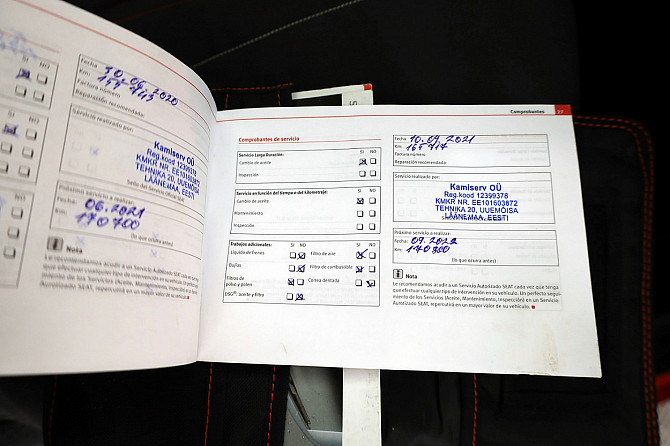 SI NO
Fecha: 10.06.2020
Km:
Factura número
Reparación recomendada:
Servicio realizado por:
Kamiserv OÜ
Reg.kood 12399378
KMKR NR. EE101603872
TEHNIKA 20, UUEMÕISA
LÄÄNEMAA, EESTI
Sello del Servicio Oficial SEAT
Próximo servicio a realizar:
Fecha: 06.2021
Km: 170 700
(lo que ocurra antes)
Nota
Le recomendamos acudir a un Servicio Autorizado SEAT
que efectuar cualquier tipo de intervención en su vehículo.
miento de los Servicios (Aceite, Mantenimiento, Inspección) en un Servicio
Autorizado SEAT, repercutirá en un mayor valor de su vehículo.
Comprobantes 27
Comprobantes de servicio
Servicio Larga Duración: SI NO
Cambio de aceite
Inspección
Servicio en función del tiempo o del kilometraje: SI NO
Cambio de aceite
Mantenimiento
Inspección
Trabajos adicionales: SI NO SI NO
Líquido de frenos Filtro de aire
Bujías Filtro de combustible
Filtros de
polvo y polen Correa dentada
DSG®: aceite y filtro
Fecha: 10.09.2021
Km:
Factura número
Reparación recomendada:
Servicio realizado por:
Kamiserv OÜ
Reg.kood 12399378
KMKR NR. EE101603872
TEHNIKA 20, UUEMÕISA
LÄÄNEMAA, EESTI
Próximo servicio a realizar:
Fecha: 09.2022
Km:
(lo que ocurra antes)
Nota
Le recomendamos acudir a un Servicio Autorizado SEAT cada vez que tenga
que efectuar cualquier tipo de intervención en su vehículo. Un perfecto segui-
miento de los Servicios (Aceite, Mantenimiento, Inspección) en un Servicio
Autorizado SEAT, repercutirá en un mayor valor de su vehículo.